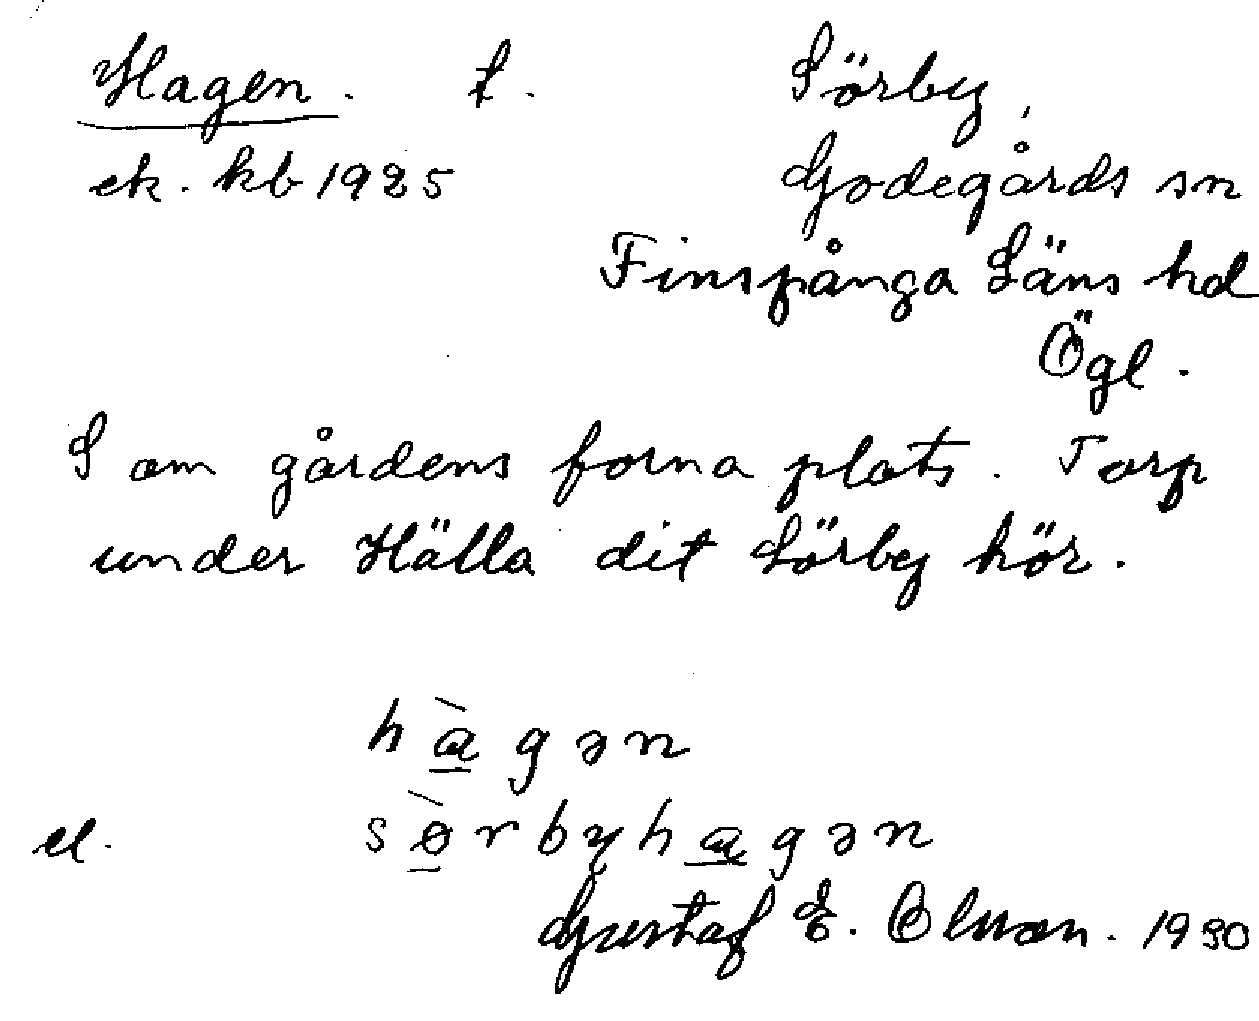 Hagen. t. Sörby,
ek. kb 1925 Godegårds sn
Finspånga Läns hd
Ögl.
S om gårdens forna plats. Torp
under Hälla dit Sörby hör.
hàgən
el. sørbyhagən
Gustaf E. Olsson. 1930